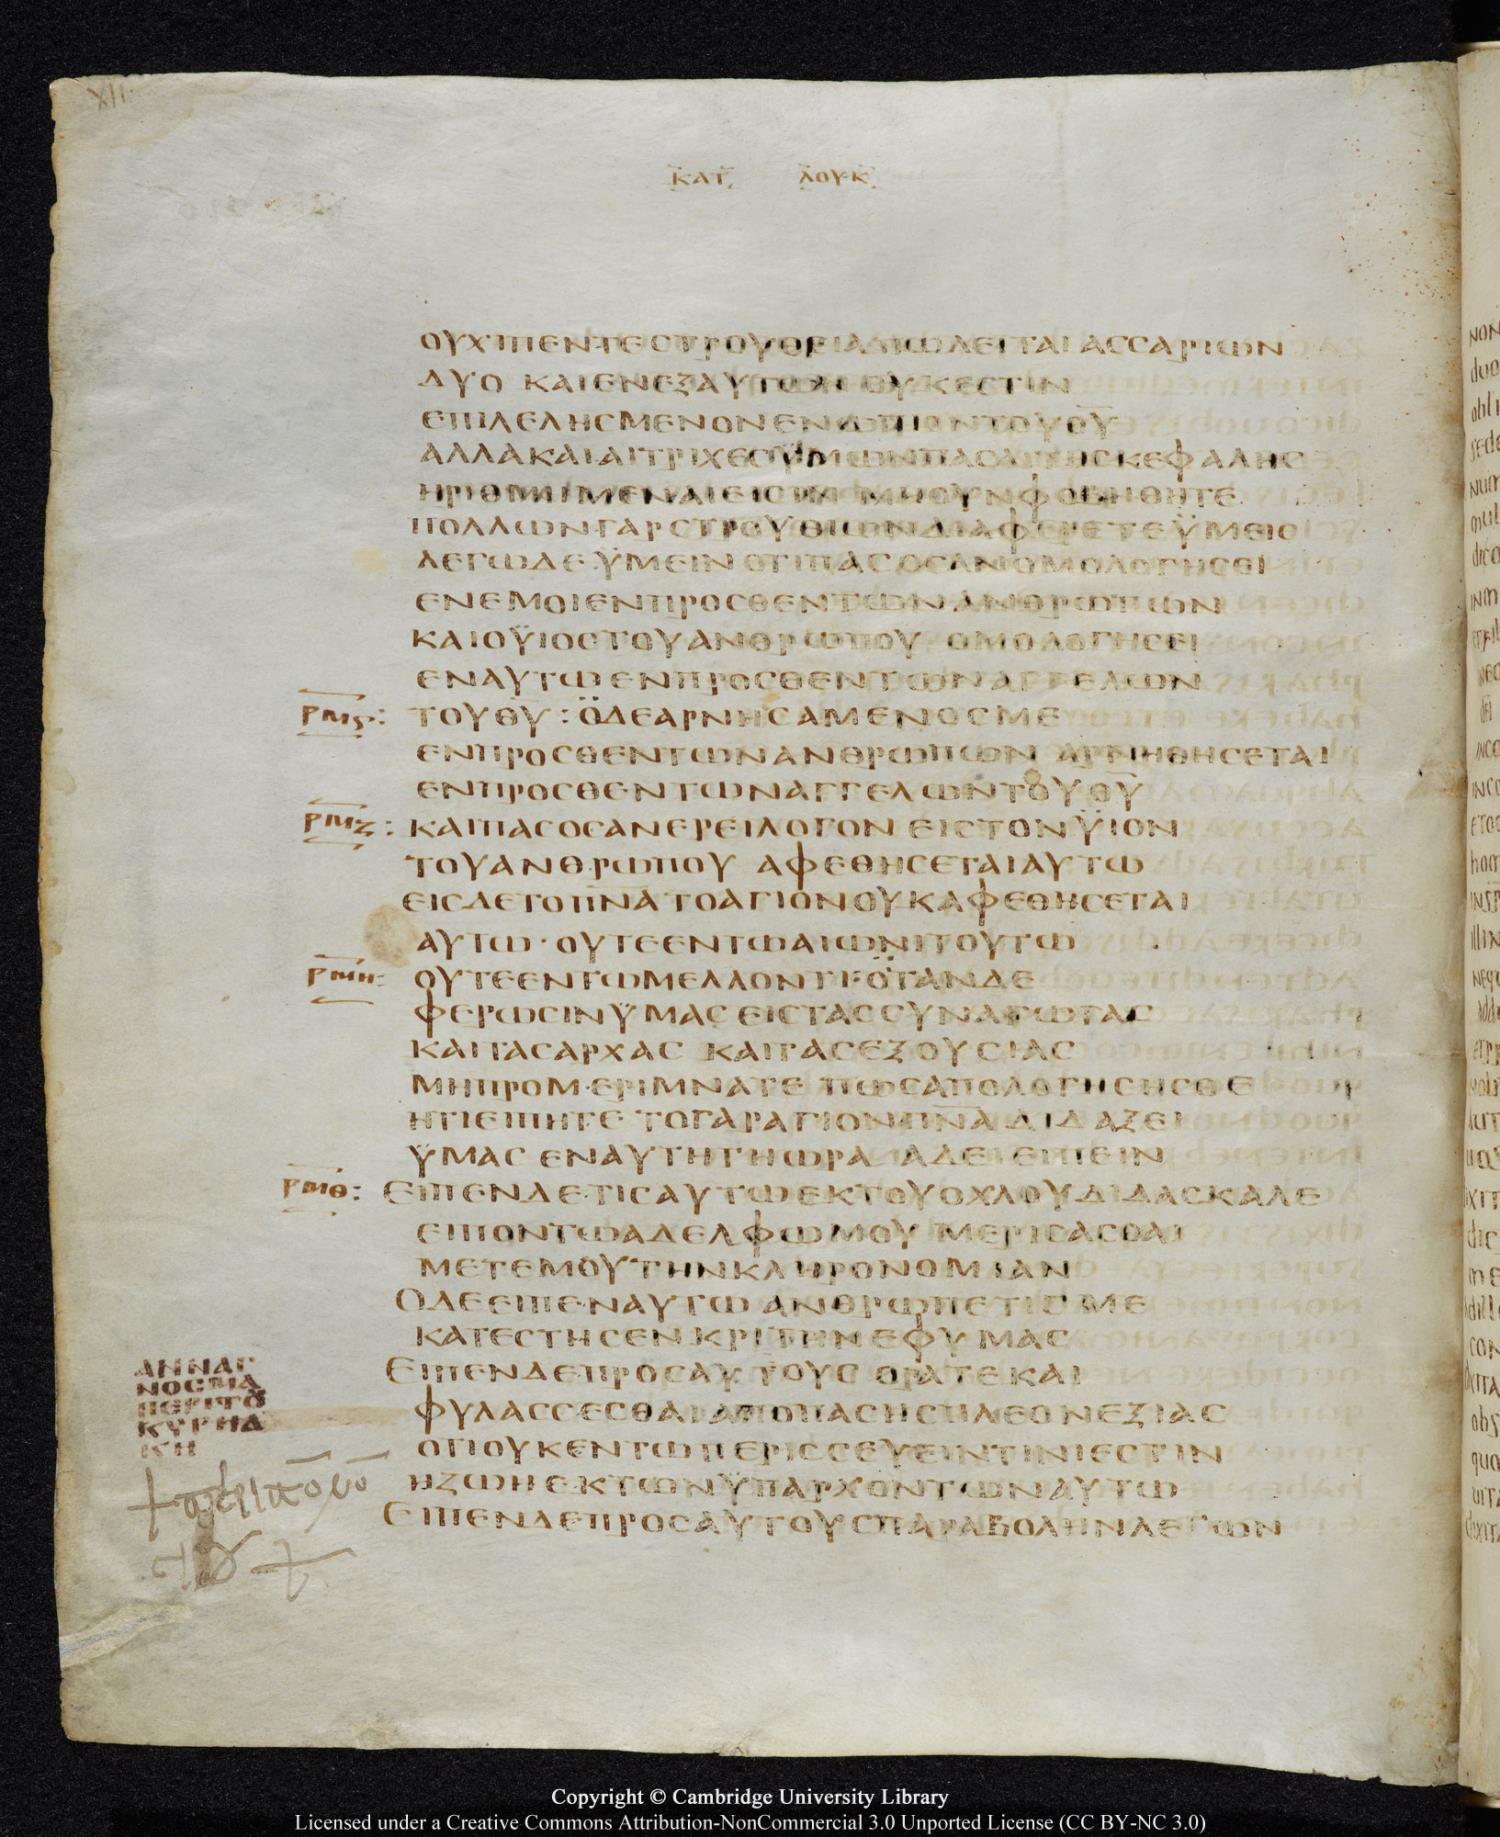 XII
ΚΑΤ ΛΟΥΚ
ΟΥΧΙ ΠΕΝΤΕ ΣΤΡΟΥΘΕΙΑ ΠΩΛΕΙΤΑΙ ΑΣΣΑΡΙΩΝ
ΔΥΟ ΚΑΙ ΕΝ ΕΞ ΑΥΤΩΝ ΟΥΚ ΕΣΤΙΝ
ΕΠΙΛΕΛΗΣΜΕΝΟΝ ΕΝΩΠΙΟΝ ΤΟΥ ΘΥ
ΑΛΛΑ ΚΑΙ ΑΙ ΤΡΙΧΕΣ ΫΜΩΝ ΠΑΣΑΙ ΤΗΣ ΚΕΦΑΛΗΣ
ΗΡΙΘΜΗΜΕΝΑΙ ΕΙΣΙΝ ΜΗ ΟΥΝ ΦΟΒΗΘΗΤΕ
ΠΟΛΛΩΝ ΓΑΡ ΣΤΡΟΥΘΙΩΝ ΔΙΑΦΕΡΕΤΕ ΫΜΕΙΣ
ΛΕΓΩ ΔΕ ΫΜΕΙΝ ΟΤΙ ΠΑΣ ΟΣ ΑΝ ΟΜΟΛΟΓΗΣΕΙ
ΕΝ ΕΜΟΙ ΕΝΠΡΟΣΘΕΝ ΤΩΝ ΑΝΘΡΩΠΩΝ
ΚΑΙ Ο ΫΙΟΣ ΤΟΥ ΑΝΘΡΩΠΟΥ ΟΜΟΛΟΓΗΣΕΙ
ΕΝ ΑΥΤΩ ΕΝΠΡΟΣΘΕΝ ΤΩΝ ΑΓΓΕΛΩΝ
ΡΜϚ: ΤΟΥ ΘΥ : Ο ΔΕ ΑΡΝΗΣΑΜΕΝΟΣ ΜΕ
ΕΝΠΡΟΣΘΕΝ ΤΩΝ ΑΝΘΡΩΠΩΝ ΑΡΝΗΘΗΣΕΤΑΙ
ΕΝΠΡΟΣΘΕΝ ΤΩΝ ΑΓΓΕΛΩΝ ΤΟΥ ΘΥ
ΡΜΖ: ΚΑΙ ΠΑΣ ΟΣ ΑΝ ΕΡΕΙ ΛΟΓΟΝ ΕΙΣ ΤΟΝ ΫΙΟΝ
ΤΟΥ ΑΝΘΡΩΠΟΥ ΑΦΕΘΗΣΕΤΑΙ ΑΥΤΩ
ΕΙΣ ΔΕ ΤΟ ΠΝΑ ΤΟ ΑΓΙΟΝ ΟΥΚ ΑΦΕΘΗΣΕΤΑΙ
ΑΥΤΩ · ΟΥΤΕ ΕΝ ΤΩ ΑΙΩΝΙ ΤΟΥΤΩ
ΡΜΗ: ΟΥΤΕ ΕΝ ΤΩ ΜΕΛΛΟΝΤΙ: ΟΤΑΝ ΔΕ
ΦΕΡΩΣΙΝ ΫΜΑΣ ΕΙΣ ΤΑΣ ΣΥΝΑΓΩΓΑΣ
ΚΑΙ ΤΑΣ ΑΡΧΑΣ ΚΑΙ ΤΑΣ ΕΞΟΥΣΙΑΣ
ΜΗ ΠΡΟΜΕΡΙΜΝΑΤΕ ΠΩΣ ΑΠΟΛΟΓΗΣΗΣΘΕ
Η ΤΙ ΕΙΠΗΤΕ ΤΟ ΓΑΡ ΑΓΙΟΝ ΠΝΑ ΔΙΔΑΞΕΙ
ΫΜΑΣ ΕΝ ΑΥΤΗ ΤΗ ΩΡΑ Α ΔΕΙ ΕΙΠΕΙΝ
ΡΜΘ: ΕΙΠΕΝ ΔΕ ΤΙΣ ΑΥΤΩ ΕΚ ΤΟΥ ΟΧΛΟΥ ΔΙΔΑΣΚΑΛΕ
ΕΙΠΟΝ ΤΩ ΑΔΕΛΦΩ ΜΟΥ ΜΕΡΙΣΑΣΘΑΙ
ΜΕΤ ΕΜΟΥ ΤΗΝ ΚΛΗΡΟΝΟΜΙΑΝ
Ο ΔΕ ΕΙΠΕΝ ΑΥΤΩ ΑΝΘΡΩΠΕ ΤΙΣ ΜΕ
ΚΑΤΕΣΤΗΣΕΝ ΚΡΙΤΗΝ ΕΦ ΥΜΑΣ
ΕΙΠΕΝ ΔΕ ΠΡΟΣ ΑΥΤΟΥΣ ΟΡΑΤΕ ΚΑΙ
ΦΥΛΑΣΣΕΣΘΑΙ ΑΠΟ ΠΑΣΗΣ ΠΛΕΟΝΕΞΙΑΣ
ΟΤΙ ΟΥΚ ΕΝ ΤΩ ΠΕΡΙΣΣΕΥΕΙΝ ΤΙΝΙ ΕΣΤΙΝ
Η ΖΩΗ ΕΚ ΤΩΝ ΫΠΑΡΧΟΝΤΩΝ ΑΥΤΩ
ΕΙΠΕΝ ΔΕ ΠΡΟΣ ΑΥΤΟΥΣ ΠΑΡΑΒΟΛΗΝ ΛΕΓΩΝ
ΑΝΝΑΓ
ΝΟΣΜΑ
ΠΕΡΙ ΤΟ
ΚΥΡΗΑ
ΚΗ
Copyright © Cambridge University Library
Licensed under a Creative Commons Attribution-NonCommercial 3.0 Unported License (CC BY-NC 3.0)